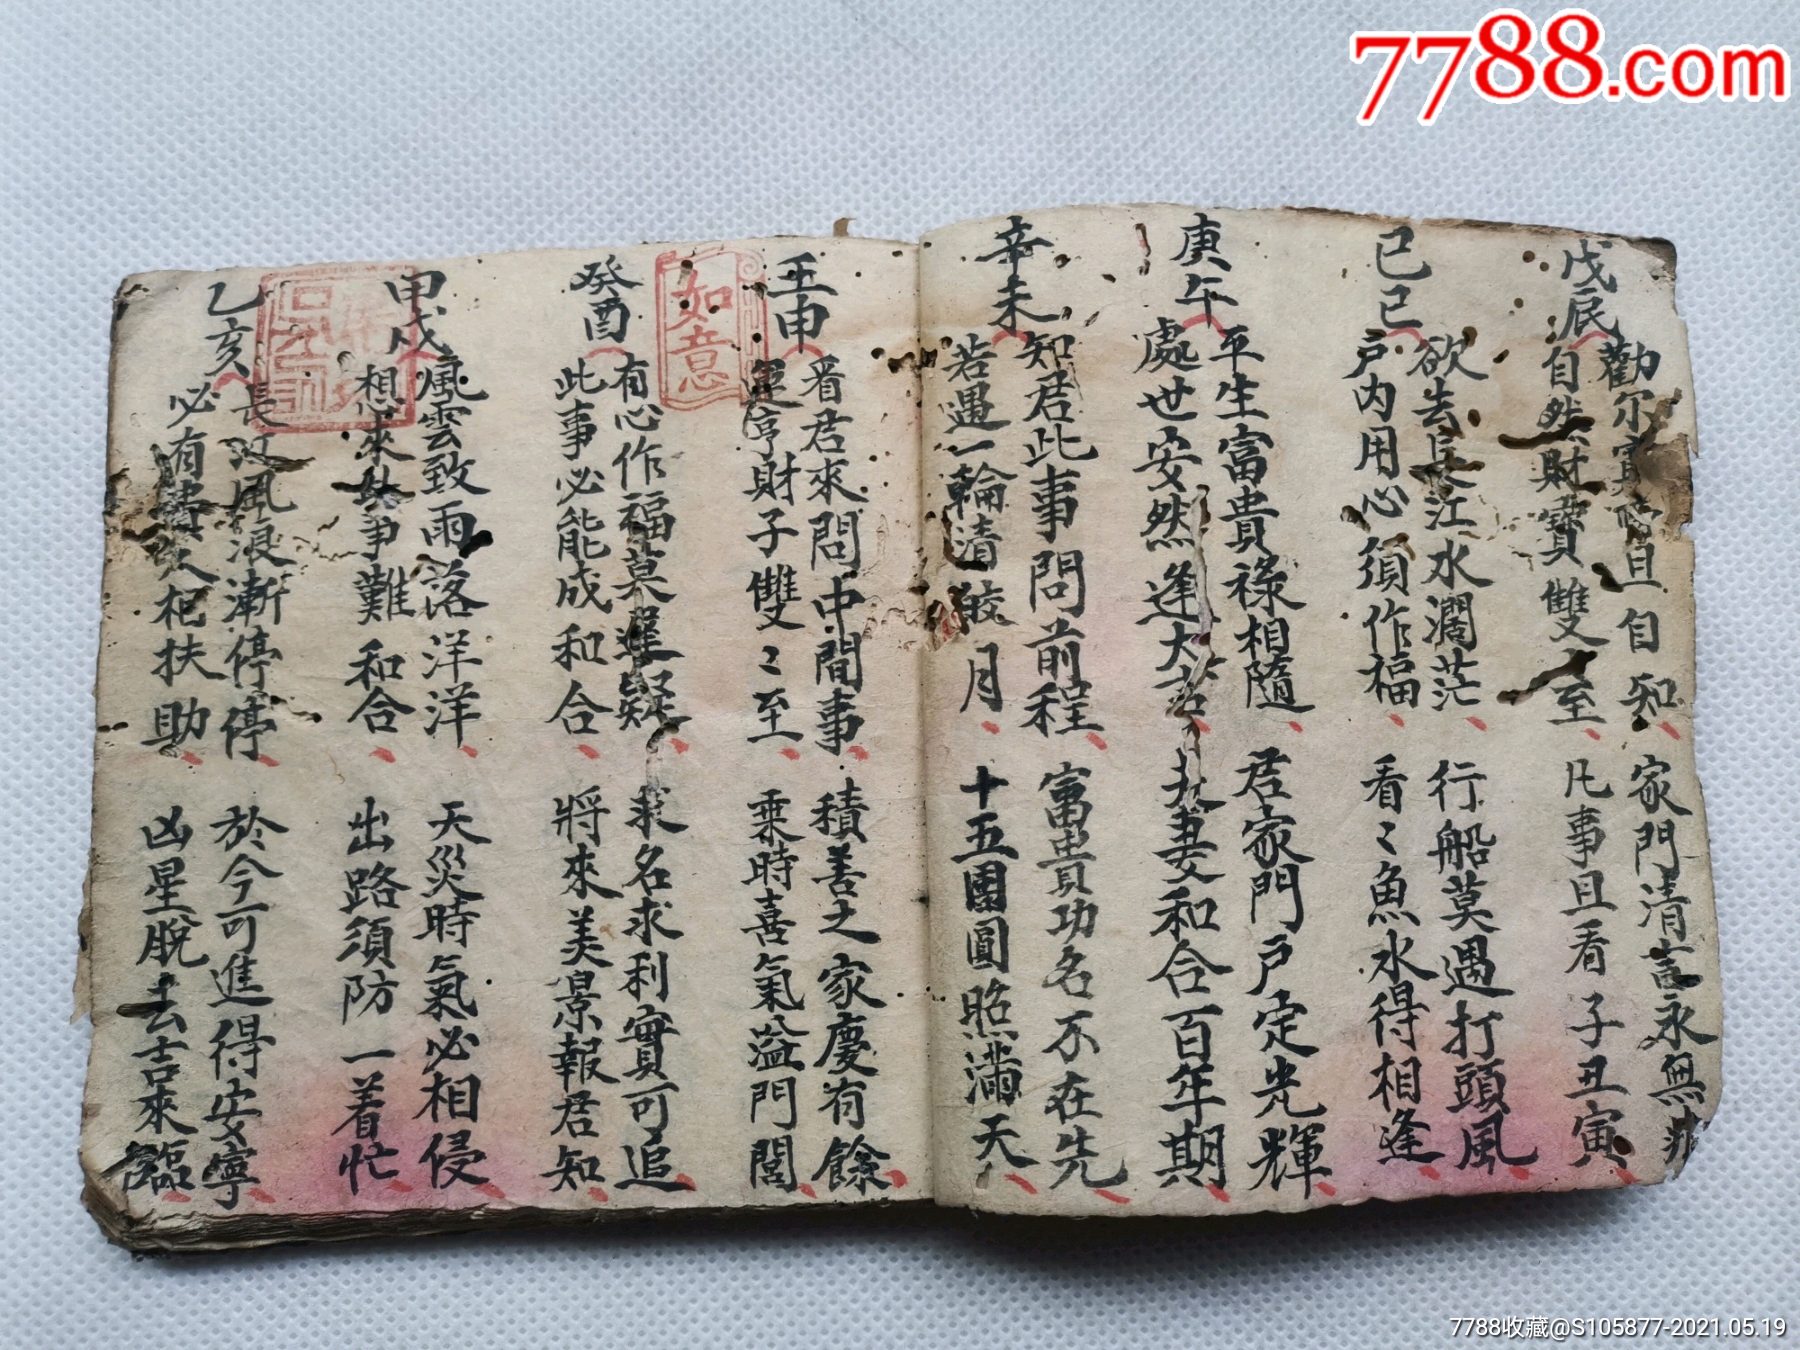 7788.com
戊辰
勸尔 且自知 家門清言永無
自然財寶雙至 凡事且看子丑寅
己巳
欲去長江水濶茫 行船莫遇打頭風
户内用心須作福 看〻魚水得相逢
庚午
平生富貴禄相隨 君家門户定光輝
處世安然逢大 夫妻和合百年期
辛未
知君此事問前程 富貴功名不在先
若遇一輪清皎月 十五團圓照滿天
壬申
看君來問中間事 積善之家慶有餘
運亨財子雙〻至 乗時喜氣溢門閭
如意
癸酉
有心作福莫遲疑 求名求利實可追
此事必能成和合 將來美景報君知
甲戌
風雲致雨落洋洋 天災時氣必相侵
想來 事難和合 出路須防一着忙
乙亥
長江風浪漸停停 於今可進得安寧
必有 人相扶助 凶星脫去吉來臨
7788收藏@S105877-2021.05.19